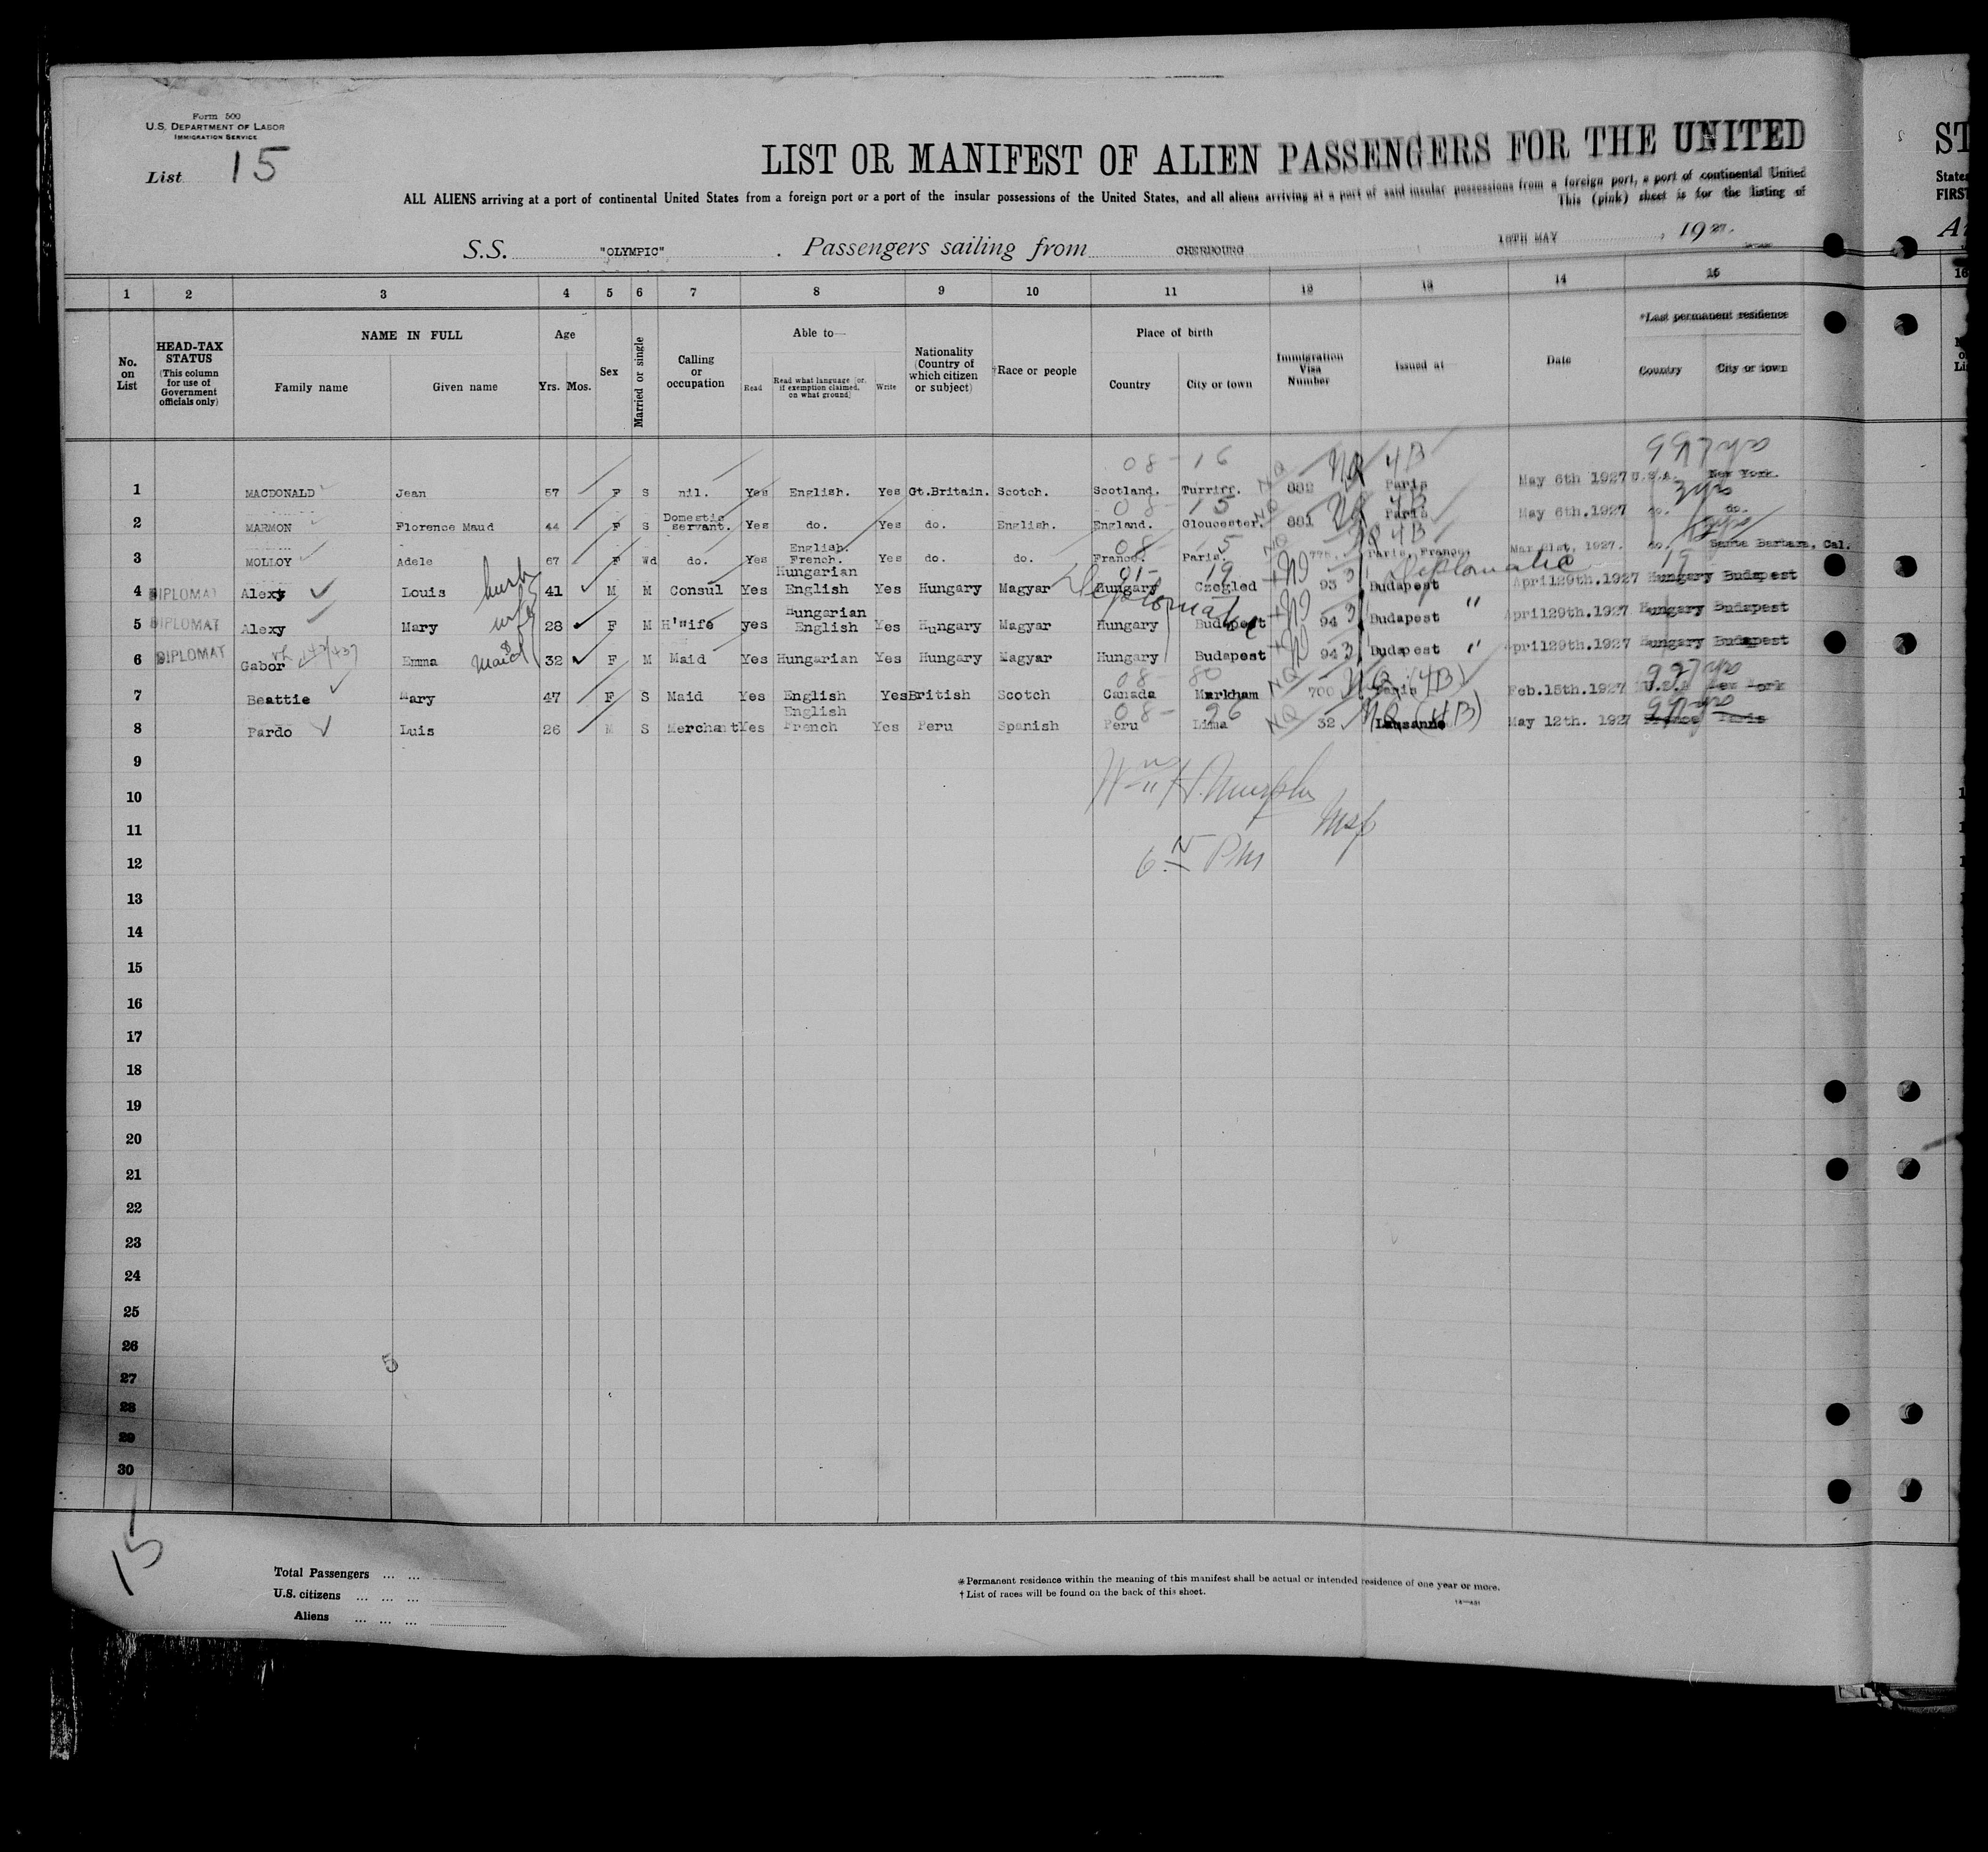 Form 500
U.S. DEPARTMENT OF LABOR
IMMIGRATION SERVICE
List 15
LIST OR MANIFEST OF ALIEN PASSENGERS FOR THE UNITED
ST
ALL ALIENS arriving at a port of continental United States from a foreign port or a port of the insular possessions of the United States, and all aliens arriving at a port of said insular possessions from a foreign port, a port of continental United
States
This (pink) sheet is for the listing of
FIRS
S.S. "OLYMPIC" . Passengers sailing from CHERBOURG 18TH MAY , 1927.
1 2 3 4 5 6 7 8 9 10 11 12 13 14 15 16
No. on List
HEAD-TAX STATUS (This column for use of Government officials only)
NAME IN FULL
Family name Given name
Age
Yrs. Mos.
Sex
Married or single
Calling or occupation
Able to—
Read Read what language [or, if exemption claimed, on what ground] Write
Nationality (Country of which citizen or subject)
†Race or people
Place of birth
Country City or town
Immigration Visa Number
Issued at
Date
*Last permanent residence
Country City or town
08-16 NQ 4B
1 MACDONALD Jean 57 F S nil. Yes English. Yes Gt.Britain. Scotch. Scotland. Turriff. 882 Paris May 6th 1927 U.S.A. New York.
08-15 NQ 4B 3yrs
2 MARMON Florence Maud 44 F S Domestic servant. Yes do. Yes do. English. England. Gloucester. 881 Paris May 6th.1927 do. do.
08-5 NQ 4B
3 MOLLOY Adele 67 F Wd do. Yes English. French. Yes do. do. France. Paris. Paris, France, Mar 21st, 1927. do. Santa Barbara, Cal.
01-19 ND 3 Diplomatic 19
4 DIPLOMAT Alexy Louis husb 41 M M Consul Yes Hungarian English Yes Hungary Magyar Hungary Czegled 93 Budapest April29th.1927 Hungary Budapest
Diplomatic ND 3
5 DIPLOMAT Alexy Mary wife 28 F M H'wife yes Hungarian English Yes Hungary Magyar Hungary Budapest 94 Budapest " April29th.1927 Hungary Budapest
6 DIPLOMAT Gabor Emma Maid 32 F M Maid Yes Hungarian Yes Hungary Magyar Hungary Budapest 94 3 Budapest " April29th.1927 Hungary Budapest
08-80 NQ (4B)
7 Beattie Mary 47 F S Maid Yes English Yes British Scotch Canada Markham 700 Paris Feb.15th.1927 U.S.A New York
08-26 NQ (4B)
8 Pardo Luis 26 M S Merchant Yes English French Yes Peru Spanish Peru Lima 32 Lausanne May 12th. 1927 France Paris
9
10
11
12
13
14
15
16
17
18
19
20
21
22
23
24
25
26
27
28
29
30
15
Total Passengers ... ...
U.S. citizens ... ... ...
Aliens ... ... ...
*Permanent residence within the meaning of this manifest shall be actual or intended residence of one year or more.
†List of races will be found on the back of this sheet.